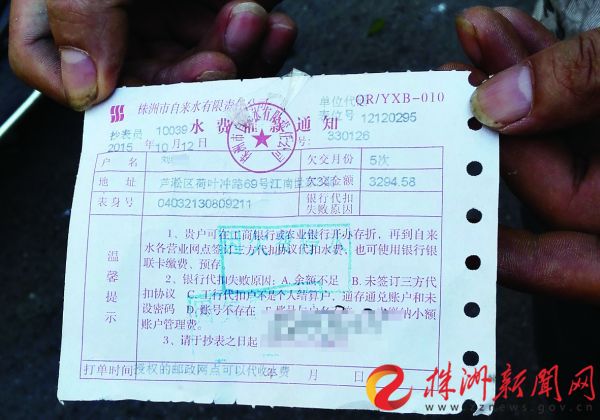 株洲市自来水有限责任公司
水费催款通知
单位代 QR/YXB-010
表位号 12120295
抄表员 10039
号: 330126
2015 年 10 月 12 日
户 名 刘 欠交月份 5次
地 址 芦淞区荷叶冲路69号江南世 欠交金额 3294.58
表身号 04032130809211 银行代扣失败原因
温馨提示
1、贵户可在工商银行或农业银行开办存折,再到自来
水各营业网点签订三方代扣协议代扣水费,也可使用银行银
联卡缴费、预存
2、银行代扣失败原因:A.余额不足 B.未签订三方代
扣协议 C.工行代扣户不是个人结算户,通存通兑账户和未
设密码 D.账号不存在 缴纳小额
账户管理费。
3、请于抄表之日起
打单时间 授权的邮政网点可以代收水费 年 月 日
株洲新闻网
www.zznews.gov.cn